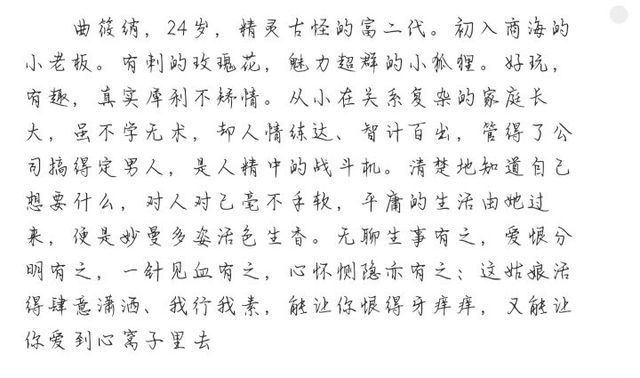 曲筱绡，24岁，精灵古怪的富二代。初入商海的
小老板。有刺的玫瑰花，魅力超群的小狐狸。好玩，
有趣，真实犀利不矫情。从小在关系复杂的家庭长
大，虽不学无术，却人情练达、智计百出，管得了公
司搞得定男人，是人精中的战斗机。清楚地知道自己
想要什么，对人对己毫不手软，平庸的生活由她过
来，便是妙曼多姿活色生香。无聊生事有之，爱恨分
明有之，一针见血有之，心怀恻隐亦有之；这姑娘活
得肆意潇洒、我行我素，能让你恨得牙痒痒，又能让
你爱到心窝子里去